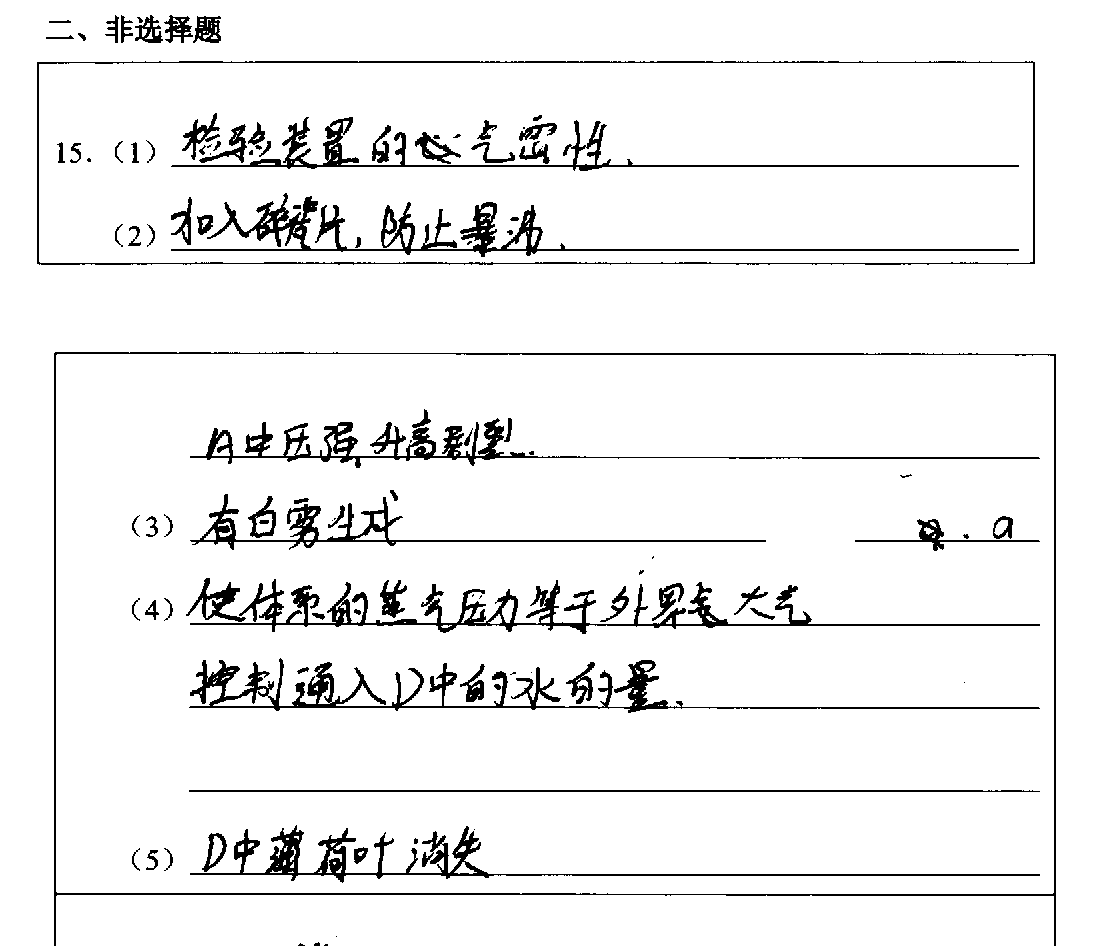 二、非选择题
15.（1）检验装置的气密性.
（2）加入碎瓷片，防止暴沸.
A中压强升高剧烈.
（3）有白雾生成 . a
（4）使体系的蒸气压力等于外界大气
控制通入D中的水的量.
（5）D中薄荷叶消失